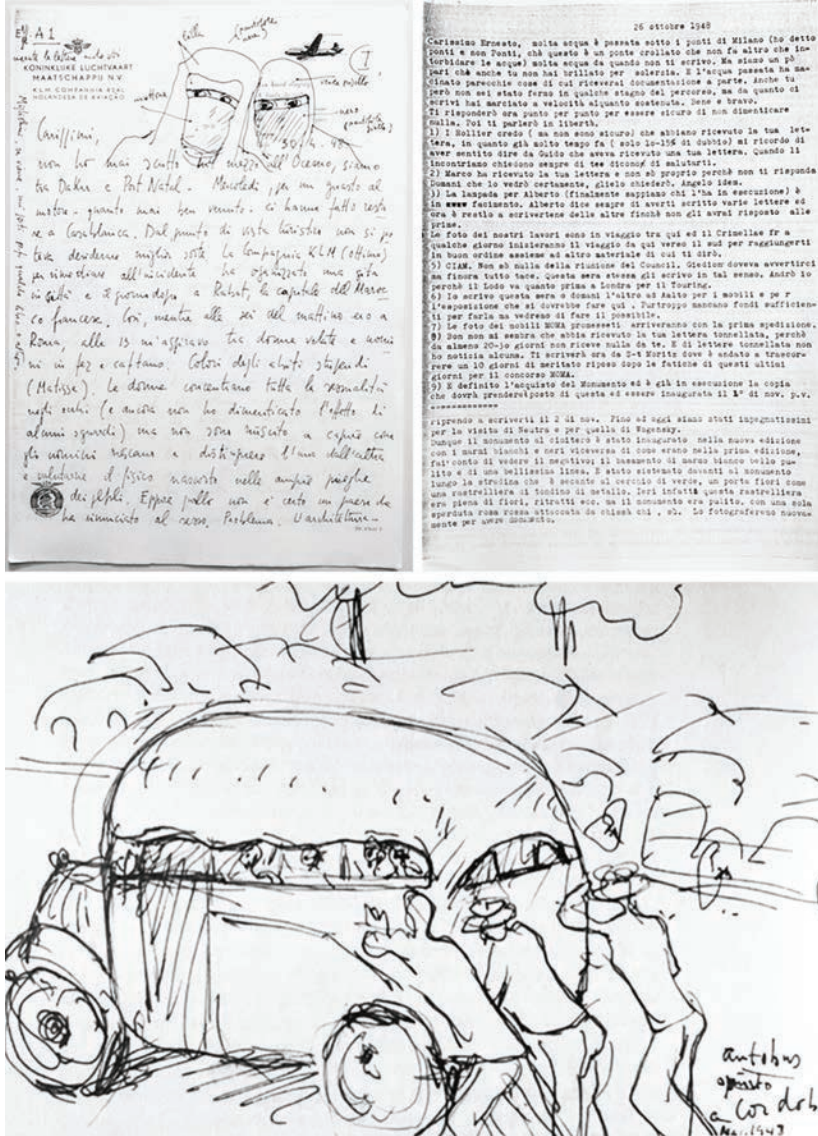 A 1
KONINKLIJKE LUCHTVAART
MAATSCHAPPIJ N.V.
KLM COMPANHIA REAL
HOLANDESA DE AVIAÇÃO
I
30.4.48
Carissimi,
non ho mai scritto sul mezzo all'Oceano, siamo
tra Dakar e Port Natal. Mercoledì, per un guasto al
motore - quanto mai ben venuto - ci hanno fatto resta
re a Casablanca. Dal punto di vista turistico non si po
teva desiderare miglior sorte. La Compagnia KLM (ottima)
per rimediare all'incidente ha organizzato una gita
in città e il giorno dopo a Rabat, la capitale del Maroc
co francese. Così, mentre alle sei del mattino ero a
Roma, alle 13 m'aggiravo tra donne velate e uomi
ni in fez e caftano. Colori degli abiti stupendi
(Matisse). Le donne concentrano tutta la sessualità
negli occhi (e ancora non ho dimenticato l'effetto di
alcuni sguardi) ma non sono riuscito a capire come
gli uomini riescano a distinguere l'una dall'altra
e valutarne il fisico nascosto nelle ampie pieghe
dei . Eppure quello non è certo un paese che
ha rinunciato al sesso. Problema. L'architettura -
26 ottobre 1948
Carissimo Ernesto, molta acqua è passata sotto i ponti di Milano (ho detto
ponti e non Ponti, chè questo è un ponte crollato che non fa altro che in-
torbidare le acque) molta acqua da quando non ti scrivo. Ma siamo un pò
pari chè anche tu non hai brillato per solerzia. E l'acqua passata ha ma-
cinato parecchie cose di cui riceverai documentazione a parte. Anche tu
però non sei stato fermo in qualche stagno del percorso, ma da quanto ci
scrivi hai marciato a velocità alquanto sostenuta. Bene e bravo.
Ti risponderò ora punto per punto per essere sicuro di non dimenticare
nulla. Poi ti parlerò in libertà.
1) I Rollier credo ( ma non sono sicuro) che abbiano ricevuto la tua let-
tera, in quanto già molto tempo fa ( solo 10-15% di dubbio) mi ricordo di
aver sentito dire da Guido che aveva ricevuto una tua lettera. Quando li
incontriamo chiedono sempre di te e diconof di salutarti.
2) Marco ha ricevuto la tua lettera e non sò proprio perchè non ti risponda
Domani che lo vedrò certamente, glielo chiederò. Angelo idem.
3) La lampada per Alberto (finalmente sappiamo chi l'ha in esecuzione) è
in facimento. Alberto dice sempre di averti scritto varie lettere ed
ora è restio a scrivertene delle altre finchè non gli avrai risposto alle
prime.
Le foto dei nostri lavori sono in viaggio tra qui ed il Crimellae fr a
qualche giorno inizieranno il viaggio da qui verso il sud per raggiungerti
in buon ordine assieme ad altro materiale di cui ti dirò.
5) CIAM. Non sò nulla della riunione del Council. Giedion doveva avvertirci
ma finora tutto tace. Questa sera stessa gli scrivo in tal senso. Andrò io
perchè il Lodo va quanto prima a Londra per il Touring.
6) Io scrivo questa sera o domani l'altro ad Aalto per i mobili e pe r
l'esposizione che si dovrebbe fare qui . Purtroppo mancano fondi sufficien-
ti per farla ma vedremo di fare il possibile.
7) Le foto dei mobili MOMA promesseti arriveranno con la prima spedizione.
8) Don non mi sembra che abbia ricevuto la tua lettera tonnellata, perchè
da almeno 20-30 giorni non riceve nulla da te. E di lettere tonnellata non
ho notizia alcuna. Ti scriverà ora da S-t Moritz dove è andato a trascor-
rere un 10 giorni di meritato riposo dopo le fatiche di questi ultimi
giorni per il concorso MOMA.
9) E definito l'acquisto del Monumento ed è già in esecuzione la copia
che dovrà prendere posto di questa ed essere inaugurata il 1° di nov. p.v.
------------
riprendo a scriverti il 2 di nov. Fino ad oggi siamo stati impegnatissimi
per la visita di Neutra e per quella di Wogensky.
Dunque il monumento al cimitero è stato inaugurato nella nuova edizione
con i marmi bianchi e neri viceversa di come erano nella prima edizione,
fai conto di vedere il negativo; il basamento di marmo bianco bello pu-
lito e di una bellissima linea. E stato sistemato davanti al monumento
lungo la stradina che è secante al cerchio di verde, un porta fiori come
una rastrelliera di tondino di metallo. Ieri infatti questa rastrelliera
era piena di fiori, ritratti ecc. ma il monumento era pulito, con una sola
sperduta rosa rossa attaccata da chissà chi , sù. Lo fotograferemo nuova-
mente per avere documento.
autobus
a Cordob
1948